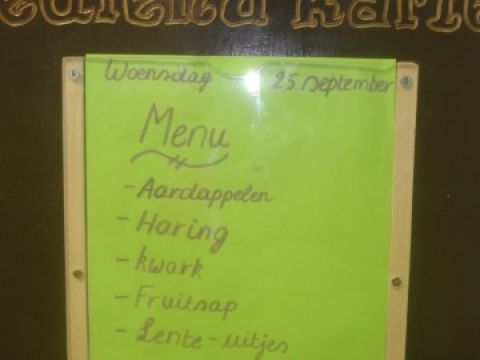 Woensdag 25 september
Menu
- Aardappelen
- Haring
- kwark
- Fruitsap
- Lente-uitjes